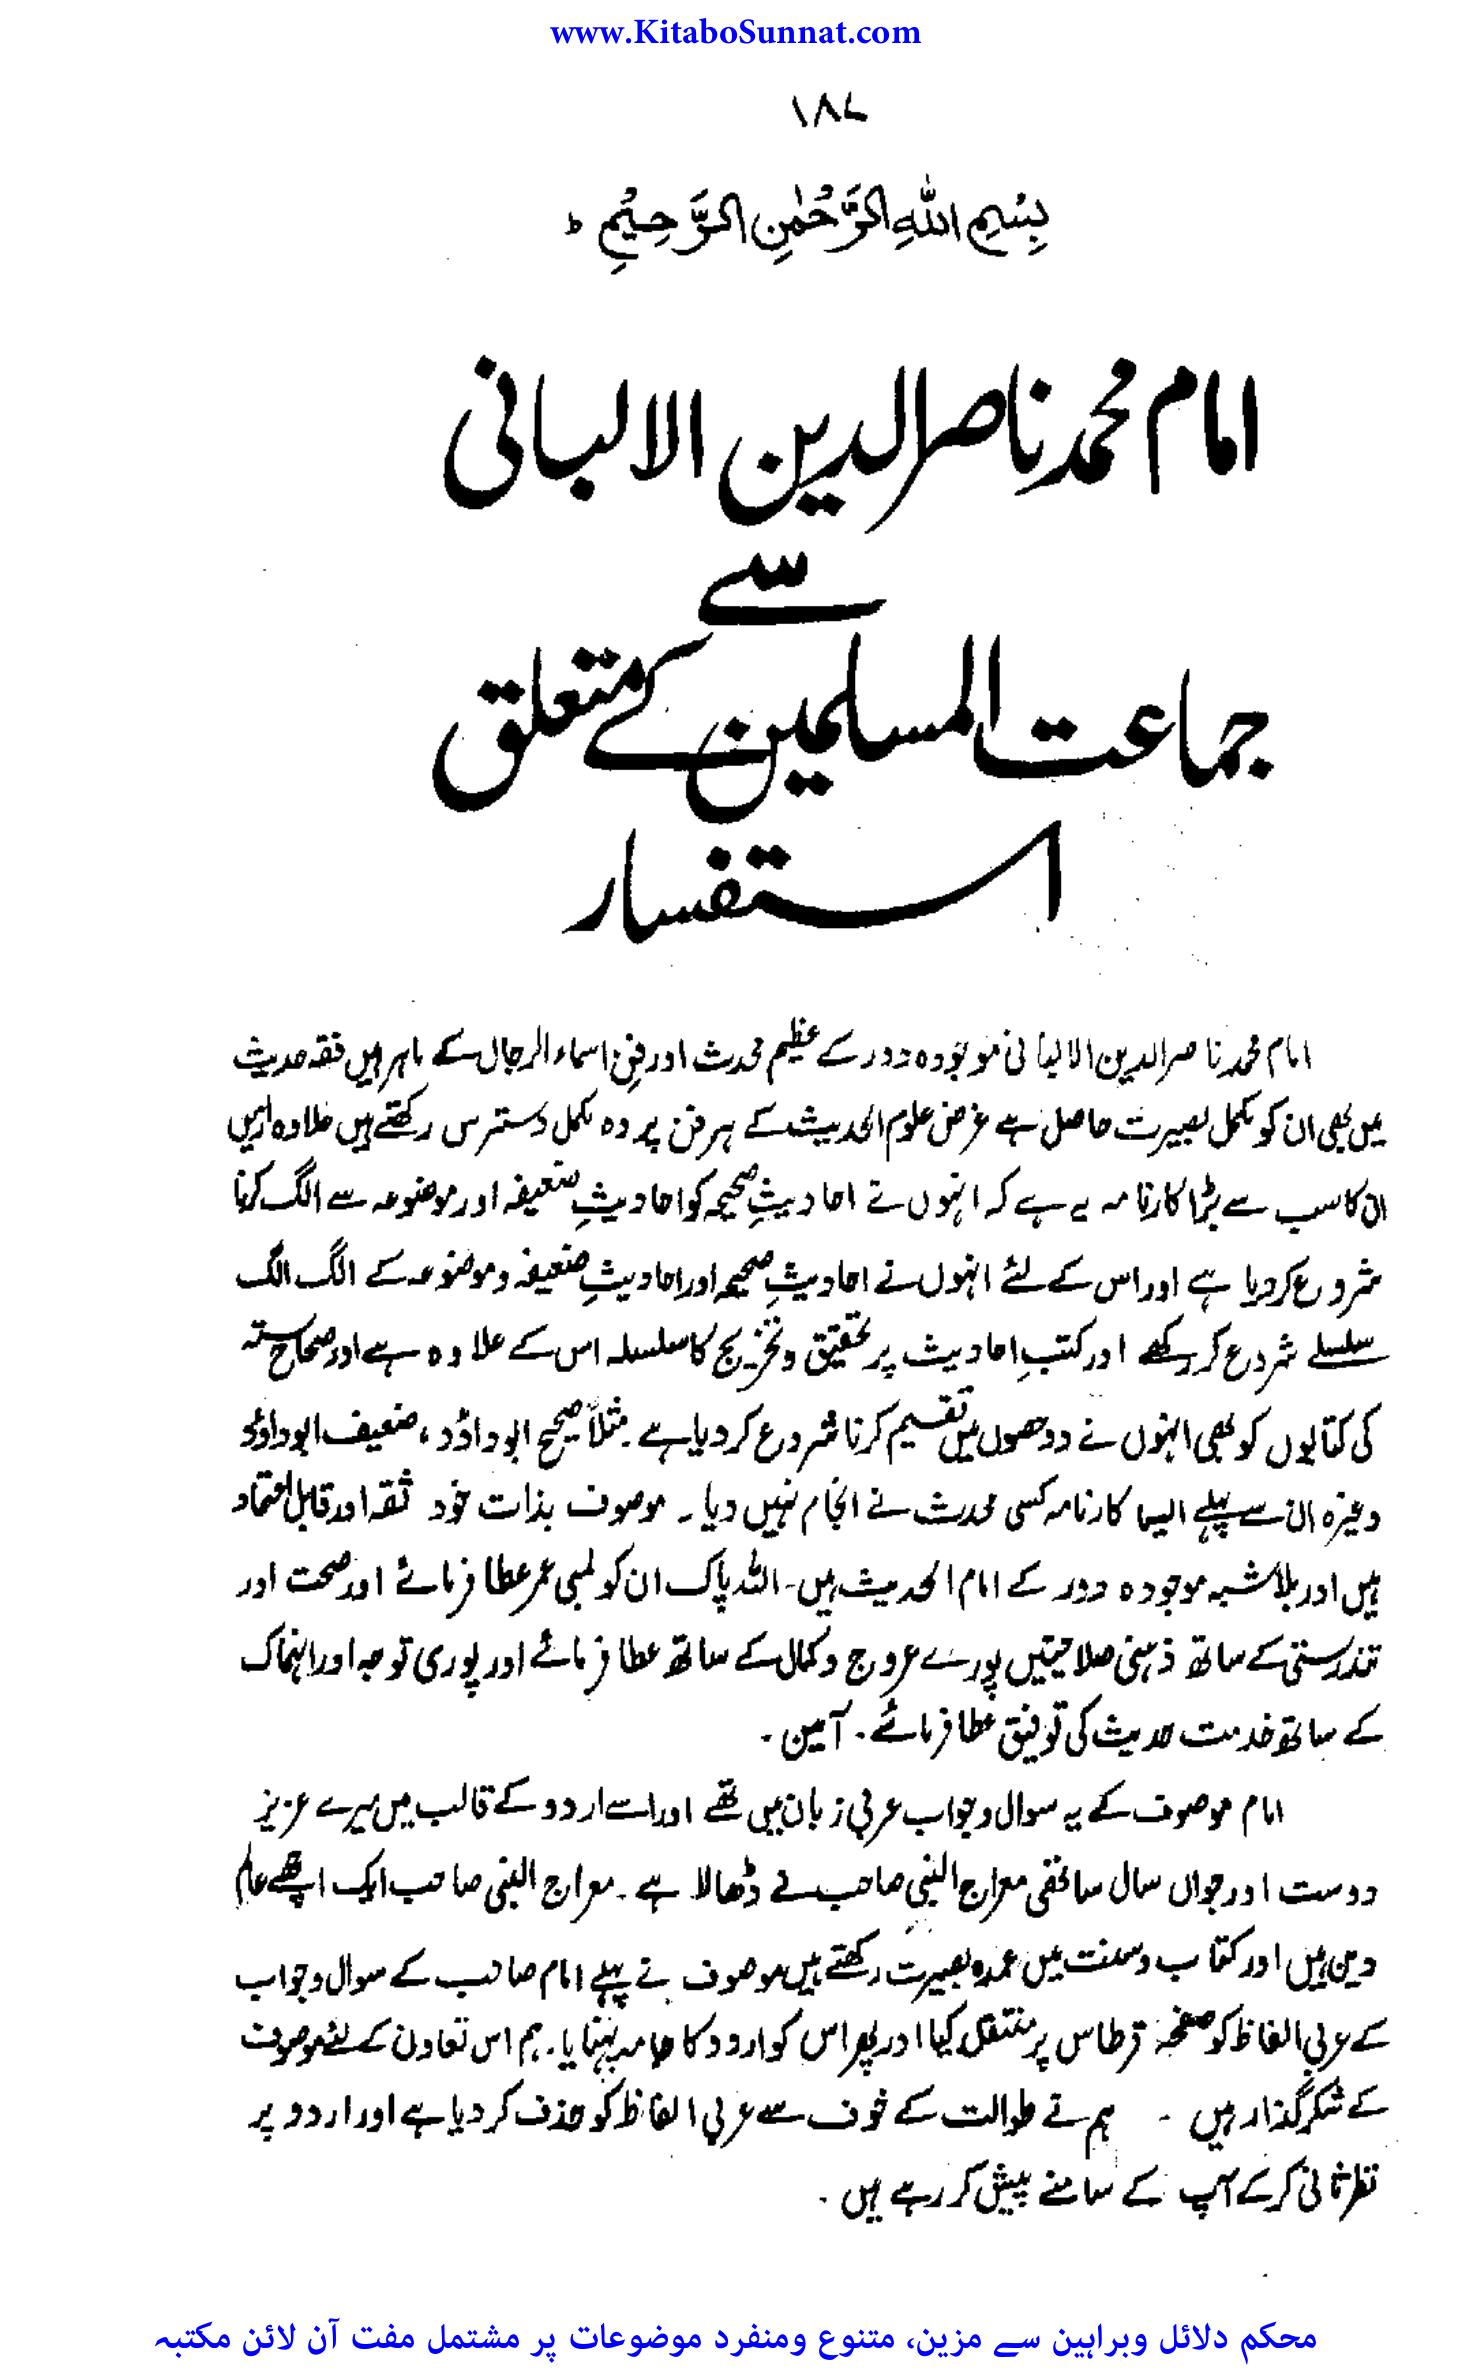 www.KitaboSunnat.com
۱۸۷
بِسْمِ اللهِ الرَّحْمٰنِ الرَّحِيْمِ ط
امام محمد ناصر الدین الالبانی
سے
جماعت المسلمین کے متعلق
استفسار
امام محمد ناصر الدین الالبانی موجودہ دور کے عظیم محدث اور فنِ اسماء الرجال کے ماہر ہیں فقہ حدیث
میں بھی ان کو مکمل بصیرت حاصل ہے غرض علوم الحدیث کے ہر فن پر وہ مکمل دسترس رکھتے ہیں علاوہ ازیں
ان کا سب سے بڑا کارنامہ یہ ہے کہ انہوں نے احادیثِ صحیحہ کو احادیثِ ضعیفہ اور موضوعہ سے الگ کرنا
شروع کر دیا ہے اور اس کے لئے انہوں نے احادیثِ صحیحہ اور احادیثِ ضعیفہ و موضوعہ کے الگ الگ
سلسلے شروع کر رکھے اور کتبِ احادیث پر تحقیق و تخریج کا سلسلہ اس کے علاوہ ہے اور صحاح ستہ
کی کتابوں کو بھی انہوں نے دو حصوں میں تقسیم کرنا شروع کر دیا ہے ۔ مثلاً صحیح ابو داؤد ، ضعیف ابو داؤد
وغیرہ ان سے پہلے ایسا کارنامہ کسی محدث نے انجام نہیں دیا ۔ موصوف بذات خود ثقہ اور قابل اعتماد
ہیں اور بلاشبہ موجودہ دور کے امام الحدیث ہیں ۔ اللہ پاک ان کو لمبی عمر عطا فرمائے اور صحت اور
تندرستی کے ساتھ ذہنی صلاحیتیں پورے عروج و کمال کے ساتھ عطا فرمائے اور پوری توجہ اور انہماک
کے ساتھ خدمت حدیث کی توفیق عطا فرمائے ۔ آمین ۔
امام موصوف کے یہ سوال و جواب عربی زبان میں تھے اور اسے اردو کے قالب میں میرے عزیز
دوست اور جواں سال ساتھی معراج النبی صاحب نے ڈھالا ہے ۔ معراج النبی صاحب ایک اچھے عالم
دین ہیں اور کتاب و سنت میں عمدہ بصیرت رکھتے ہیں موصوف نے پہلے امام صاحب کے سوال و جواب
کے عربی الفاظ کو صفحۂ قرطاس پر منتقل کیا اور پھر اس کو اردو کا جامہ پہنایا ۔ ہم اس تعاون کے لئے موصوف
کے شکر گذار ہیں ۔ ہم نے طوالت کے خوف سے عربی الفاظ کو حذف کر دیا ہے اور اردو پر
نظر ثانی کر کے آپ کے سامنے پیش کر رہے ہیں ۔
محکم دلائل وبراہین سے مزین، متنوع ومنفرد موضوعات پر مشتمل مفت آن لائن مکتبہ